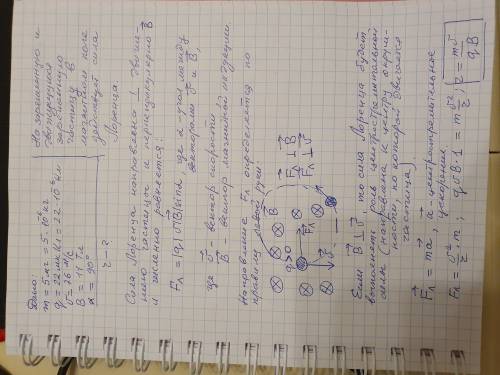 Дано:
m = 5 мг = 5·10⁻⁶ кг
q = 22 мкКл = 22·10⁻⁶ Кл
υ = 26 м/с
B = 11 Тл
α = 90°
r - ?
На заряженную и
движущуюся
заряженную
частицу в
магнитном поле
действует сила
Лоренца.
Сила Лоренца направлена ⊥ движе-
нию частицы и перпендикулярно B⃗
и численно равняется:
Fл = |q| υ |B| sinα, где α - угол между
векторами υ⃗ и B⃗,
где υ⃗ - вектор скорости
B⃗ - вектор магнитной индукции
Направление Fл определяется по
правилу правой руки
B⃗
q>0
F⃗л
υ⃗
F⃗л ⊥ B⃗
F⃗л ⊥ υ⃗
Если B⃗ ⊥ υ⃗, то сила Лоренца будет
выполнять роль центростремительной
силы (направлена к центру окруж-
ности, по которой движется
частица)
F⃗л = ma⃗, a⃗ - центростремительное
ускорение
Fл = υ²/r · m; qυB·1 = m υ²/r; r = mυ/qB